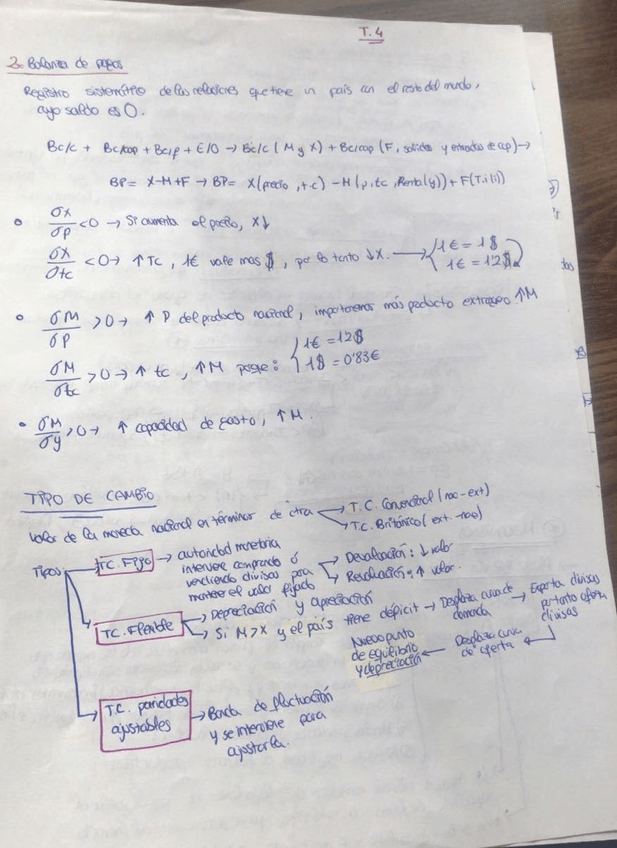 T.4
2. Balanza de pagos
Registro sistemático de las relaciones que tiene un país con el resto del mundo,
cuyo saldo es 0.
Bc/c + Bc/cap + Bc/p + E/O → Bc/c (M y X) + Bc/cap (F, salidas y entradas de cap) →
BP = X-M+F → BP = X(precio, t.c) - M(p, tc, Renta(y)) + F(T.i(i))
• σX/σP <0 → Si aumenta el precio, X↓
σX/σtc <0 → ↑ Tc, 1€ vale mas $, por lo tanto ↓X. → 1€ = 1$
1€ = 1'2$
• σM/σP >0 → ↑ P del producto nacional, importaremos más producto extranjero ↑M
σM/σtc >0 → ↑ tc, ↑M porque: 1€ = 1'2$
1$ = 0'83€
• σM/σy >0 → ↑ capacidad de gasto, ↑ M.
TIPO DE CAMBIO
Valor de la moneda nacional en términos de otra → T.C. Convencional (nac-ext)
→ T.C. Británico (ext-nac)
Tipos: → T.C. Fijo → autoridad monetaria
interviene comprando ó
vendiendo divisas para
mantener el valor fijado
→ Devaluación: ↓ valor
→ Revaluación: ↑ valor.
→ T.C. Flexible → Depreciación y apreciación
→ Si M>X y el país tiene déficit → Desplaza curva de
demanda → Exporta divisas
por tanto oferta
divisas
Desplaza curva
de oferta ←
Nuevo punto
de equilibrio
y depreciación ←
→ T.C. paridades
ajustables → Banda de fluctuación
y se interviene para
ajustarla.